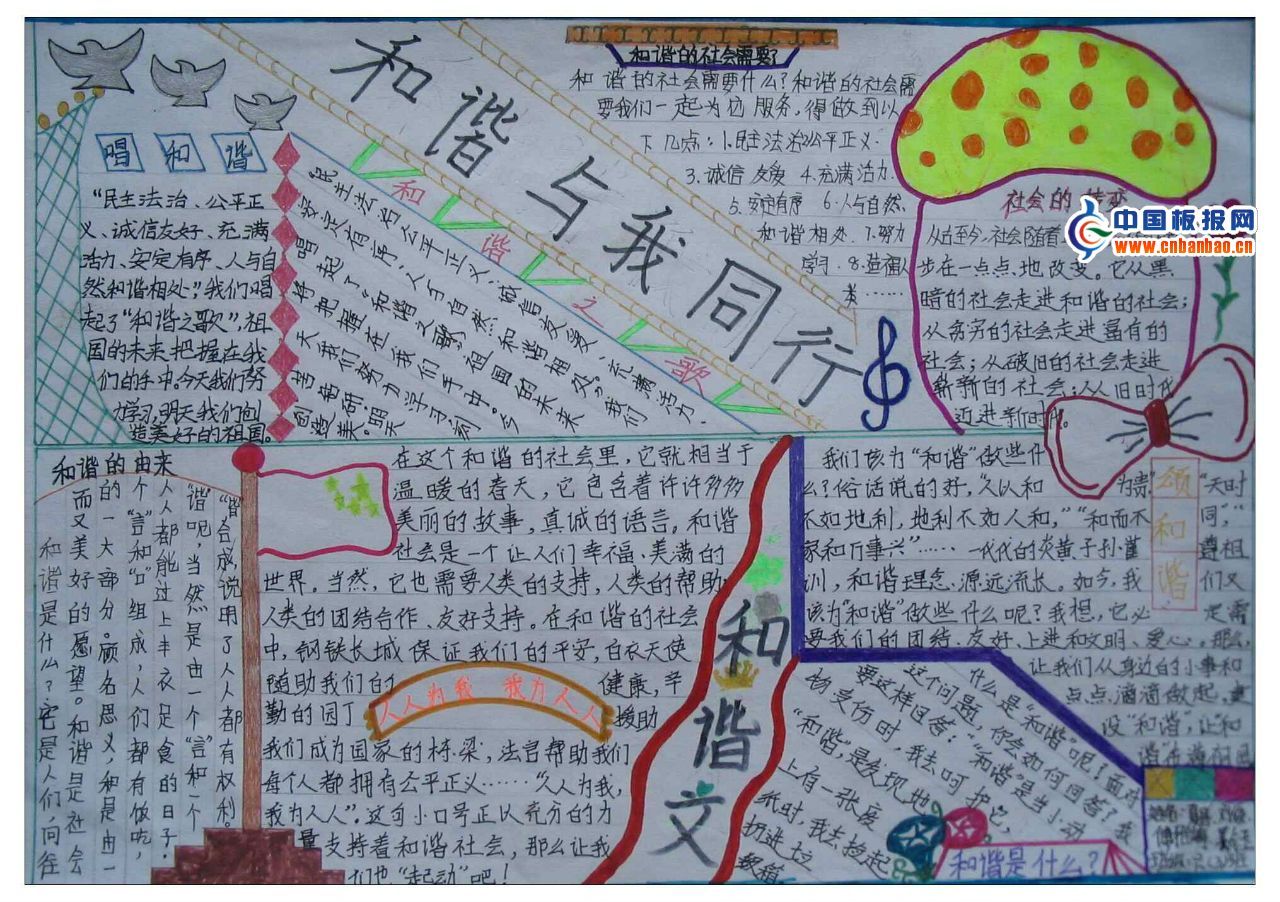 和谐与我同行
唱和谐
"民主法治、公平正
义、诚信友好、充满
活力、安定有序、人与自
然和谐相处",我们唱
起了"和谐之歌",祖
国的未来把握在我
们的手中。今天我们努
力学习,明天我们创
造美好的祖国。
和谐之歌
民主法治公平正义、诚信友爱、充满活力、
安定有序、人与自然和谐相处。"我们
唱起了"和谐之歌,但国的未来
把握在我们手中。今
天我们努力学习
明天
创造美。
和谐的社会需要
和谐的社会需要什么?和谐的社会需
要我们一起为它服务,得做到以
下几点:1.民主法治公平正义.
3.诚信友爱 4.充满活力.
5.安定有序 6.人与自然.
和谐相处.7.努力
学习.8.造福人
类……
社会的转变
从古至今,社会随着
步在一点点地改变。它从黑
暗的社会走进和谐的社会;
从贫穷的社会走进富有的
社会;从破旧的社会走进
新新的社会;从旧时代
迈进新时代。
中国板报网
www.cnbanbao.cn
和谐的由来
和谐是什么?它是人们向往
而又美好的愿望。和谐是社会
的一大部分。顾名思义,和是由一
个"言"和"口"组成,人们都有饭吃,
人人都能过上丰衣足食的日子.
"谐"呢,当然是由一个"言"和一个
"皆"合成,说明了人人都有权利。
在这个和谐的社会里,它就相当于
温暖的春天,它包含着许许多多
美丽的故事,真诚的语言。和谐
社会是一个让人们幸福.美满的
世界。当然,它也需要人类的支持,人类的帮助
人类的团结合作、友好支持。在和谐的社会
中,钢铁长城保证我们的平安,白衣天使
随助我们的健康,辛
勤的园丁援助
我们成为国家的栋梁,法官帮助我们
每个人都拥有公平正义……"人人为我,
我为人人"。这句小口号正以充分的力
量支持着和谐社会,那么让我
们也"起动"吧!
人人为我 我为人人
和谐文
我们该为"和谐"做些什
么?俗话说的好,"人以和为贵""天时
不如地利,地利不如人和,""和而不同","
家和万事兴"……一代代的炎黄子孙谨遵祖
训,和谐理念源远流长。如今,我们又
该为"和谐"做些什么呢?我想,它必定是需
要我们的团结、友好、上进和文明、爱心。那么,
让我们从身边的小事和
点点滴滴做起,建
设"和谐",让"和
谐"
颂和谐
什么是"和谐"呢?面对
这个问题,你会如何回答?我
要这样回答:"和谐"是当小动
物受伤时,我去呵护它,
"和谐"是发现地
上有一张废
纸时,我去捡起
扔进垃
圾箱。
和谐是什么?